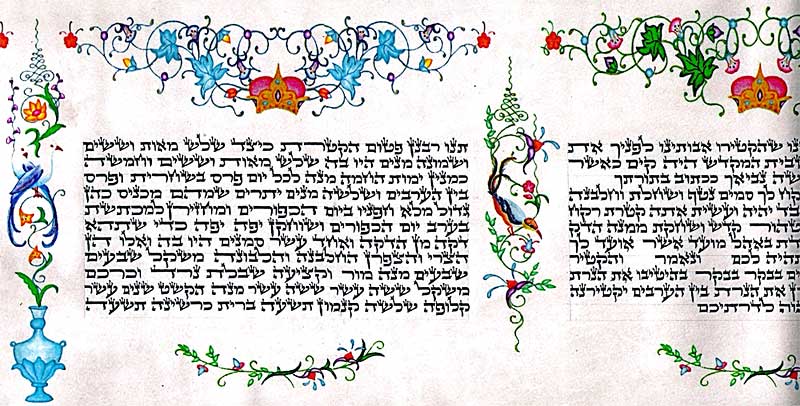 שהקטירו אבותינו לפניך את
בית המקדש היה קים כאשר
נביאך ככתוב בתורתך
קח לך סמים נטף ושחלת וחלבנה
בד יהיה ועשית אתה קטרת רקח
טהור קדש ושחקת ממנה הדק
באהל מועד אשר אועד לך
תהיה לכם ונאמר והקטיר
בבקר בבקר בהיטיבו את הנרת
את הנרת בין הערבים יקטירנה
לדרתיכם
תנו רבנן פטום הקטרת כיצד שלש מאות וששים
ושמונה מנים היו בה שלש מאות וששים וחמשה
כמנין ימות החמה מנה לכל יום פרס בשחרית ופרס
בין הערבים ושלשה מנים יתרים שמהם מכניס כהן
גדול מלא חפניו ביום הכפורים ומחזירן למכתשת
בערב יום הכפורים ושוחקן יפה יפה כדי שתהא
דקה מן הדקה ואחד עשר סמנים היו בה ואלו הן
הצרי והצפרן החלבנה והלבונה משקל שבעים
שבעים מנה מור וקציעה שבלת נרד וכרכם
משקל ששה עשר ששה עשר מנה הקשט שנים עשר
קלופה שלשה קנמון תשעה ברית כרשינה תשעה